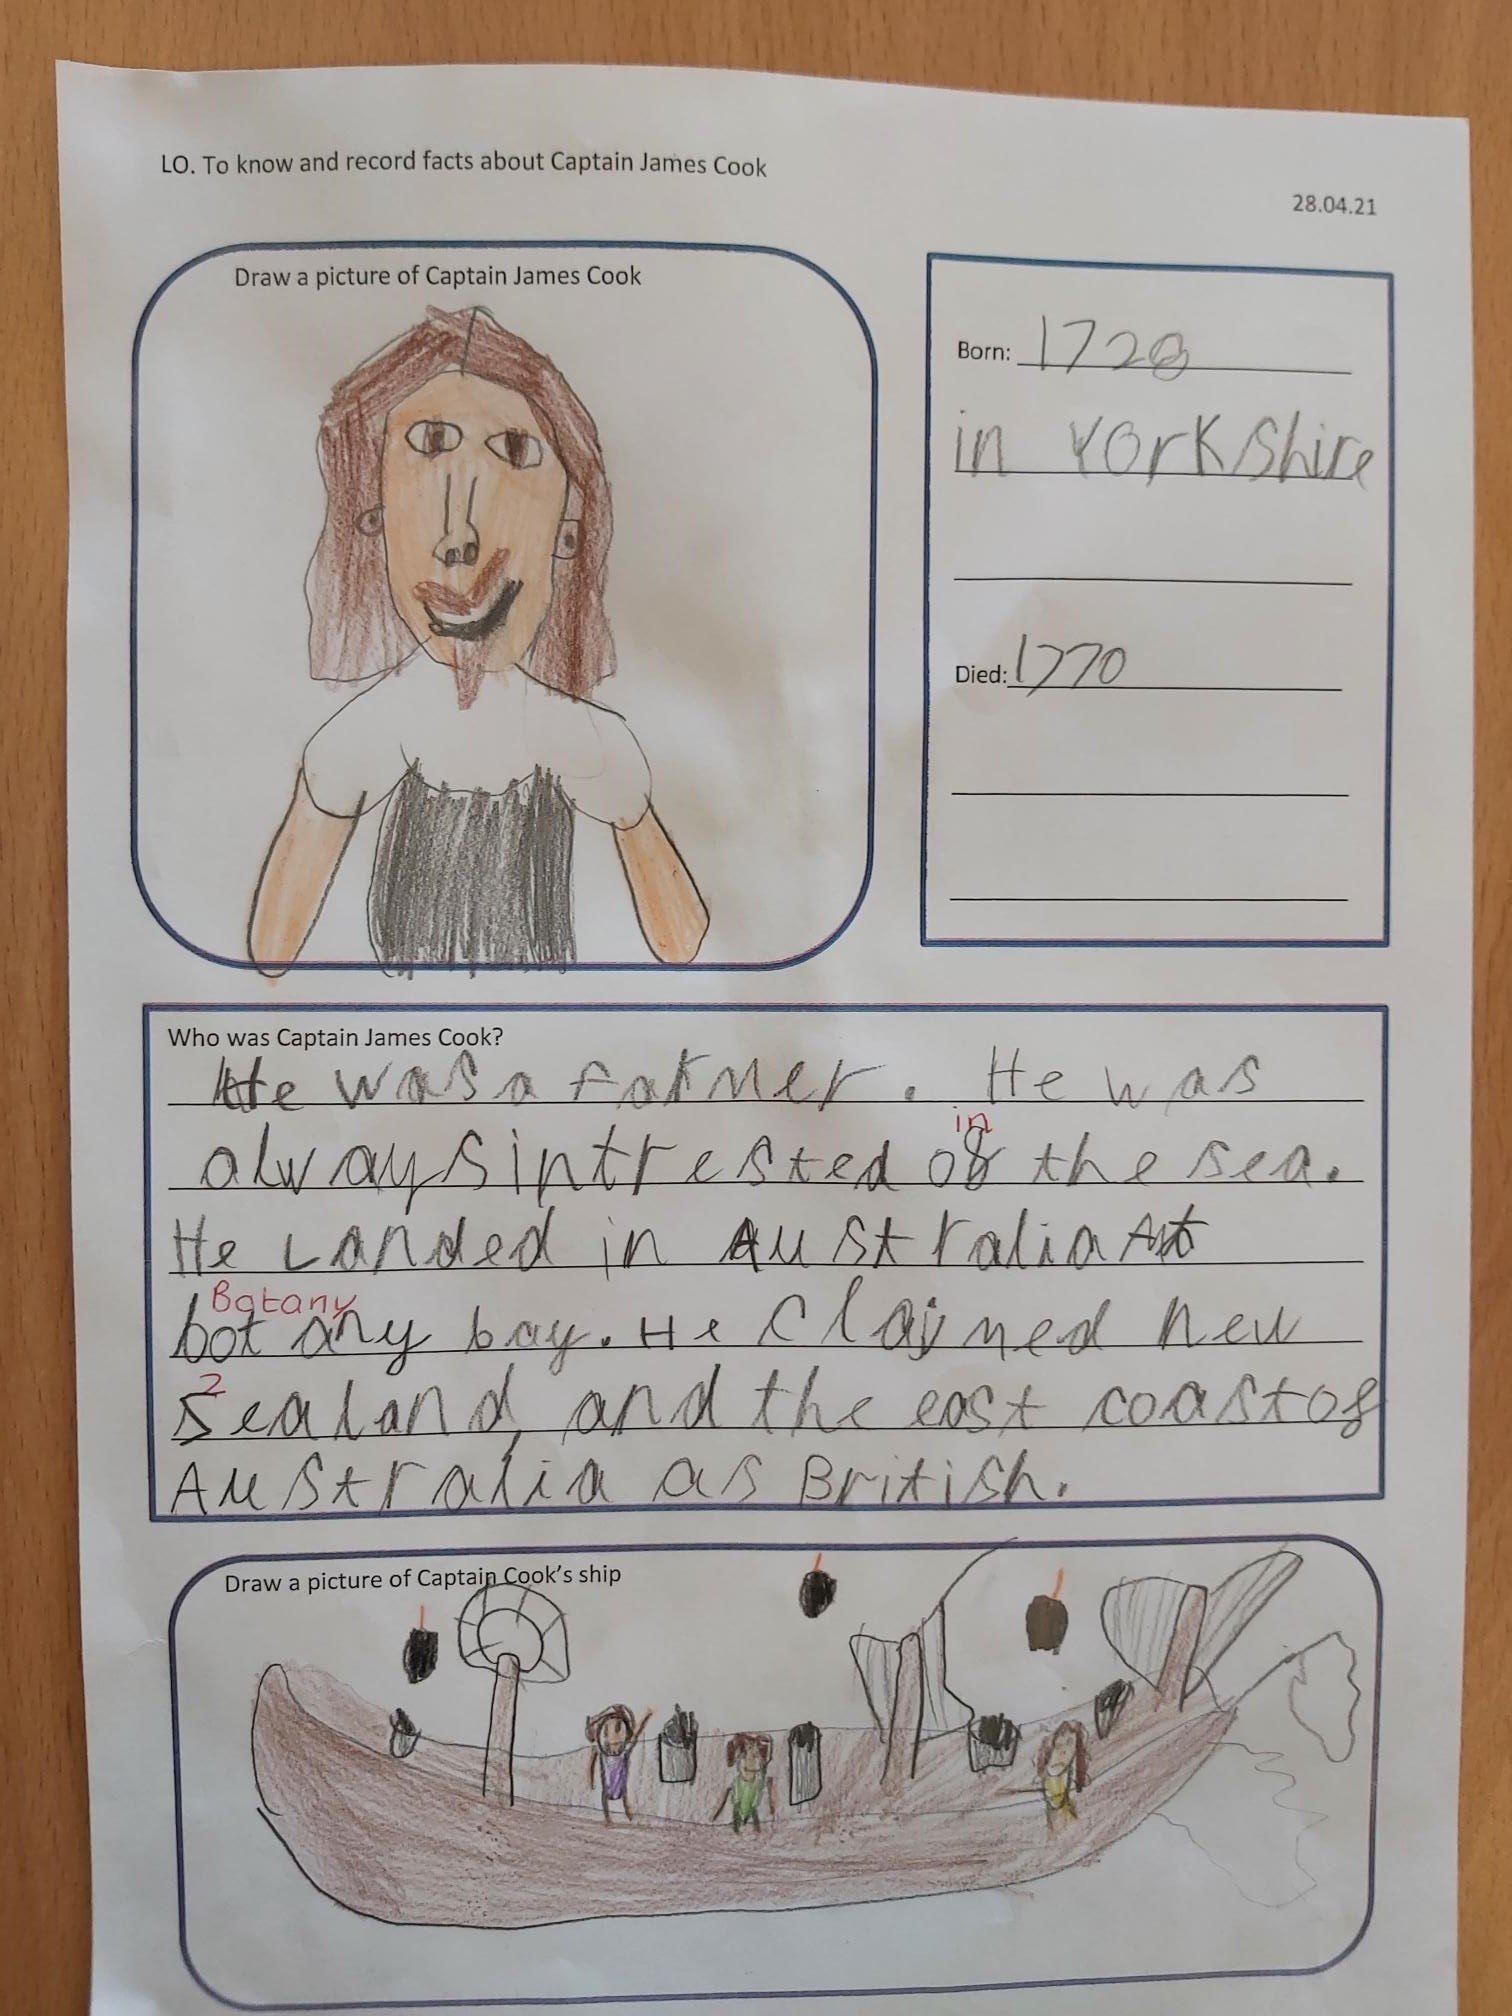 LO. To know and record facts about Captain James Cook
28.04.21
Draw a picture of Captain James Cook
Born: 1728
in Yorkshire
Died: 1770
Who was Captain James Cook?
He was a farmer. He was
in
always intrested of the sea.
He Landed in Australia At
Botany
bot any bay. He claimed new
z
sealand, and the east coast of
Australia as British.
Draw a picture of Captain Cook's ship